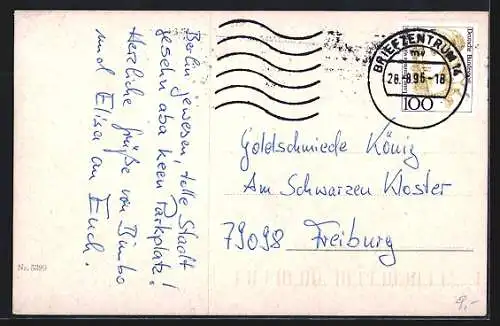 Berlin gewesen, tolle Stadt
gesehn aba keen Parkplatz!
Herzliche Grüße von Bimbo
und Elisa an Euch.
Deutsche Bundespost
BRIEFZENTRUM 14
mv
28.-8.96-18
100
Goldschmiede König
Am Schwarzen Kloster
79098 Freiburg
Nr. 5399
9,-